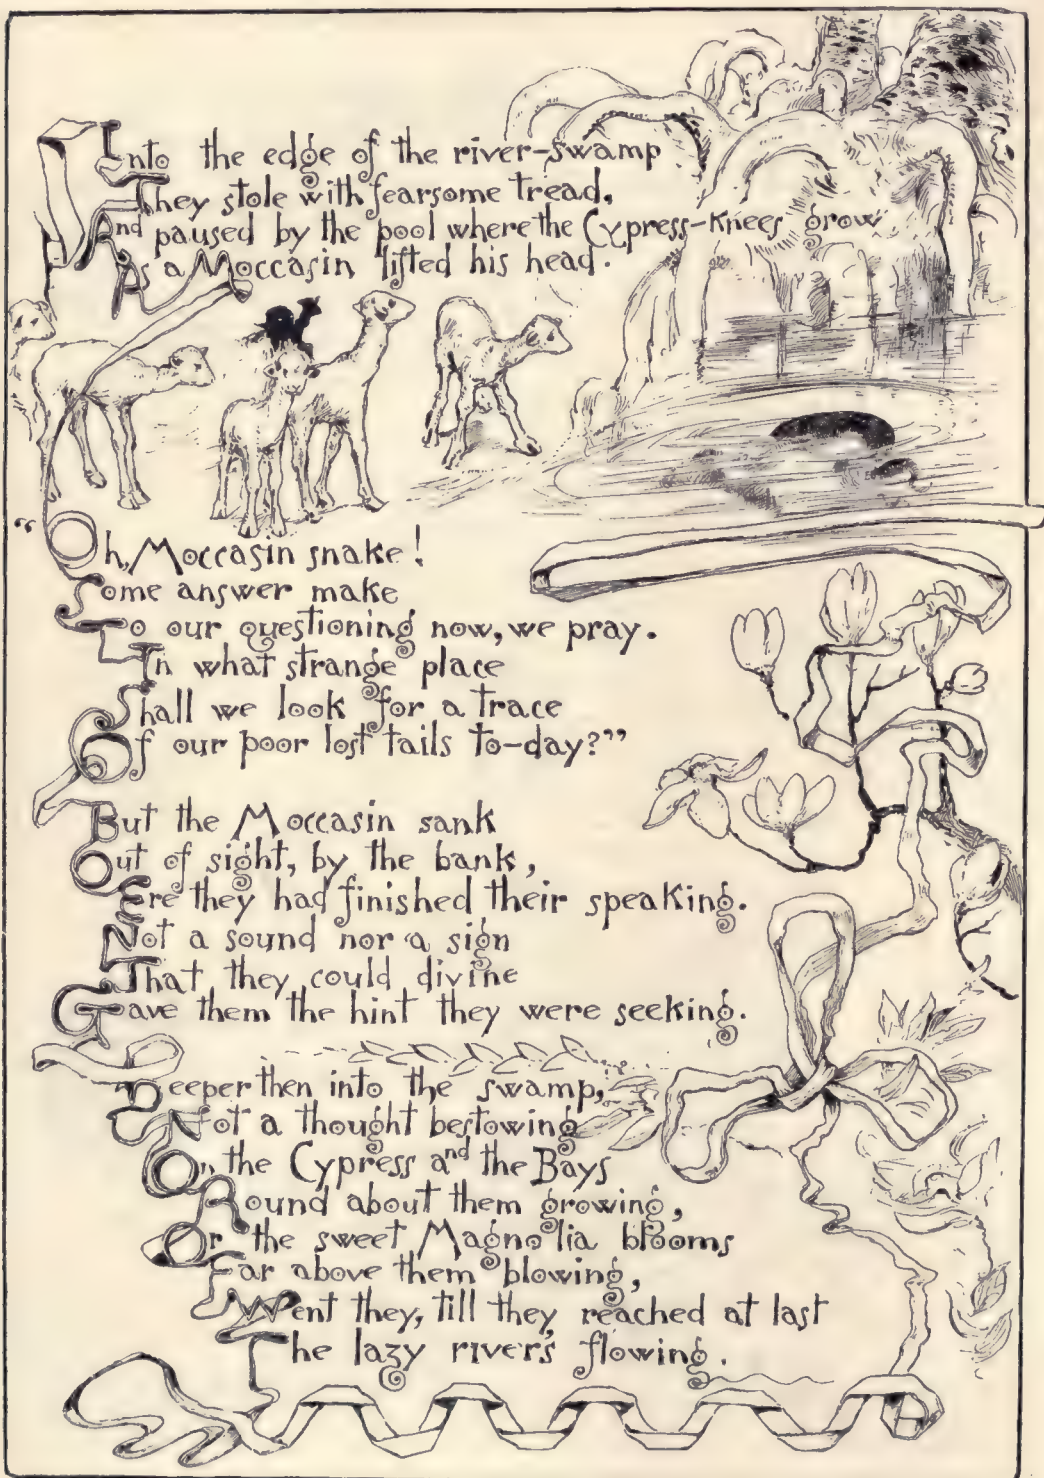 Into the edge of the river-swamp
They stole with fearsome tread,
And paused by the pool where the Cypress-Knees grow
As a Moccasin lifted his head.
"Oh, Moccasin snake!
Some answer make
To our questioning now, we pray.
In what strange place
Shall we look for a trace
Of our poor lost tails to-day?"
But the Moccasin sank
Out of sight, by the bank,
Ere they had finished their speaking.
Not a sound nor a sign
That they could divine
Gave them the hint they were seeking.
Deeper then into the swamp,
Not a thought bestowing
On the Cypress and the Bays
Round about them growing,
Or the sweet Magnolia blooms
Far above them blowing,
Went they, till they reached at last
The lazy river's flowing.